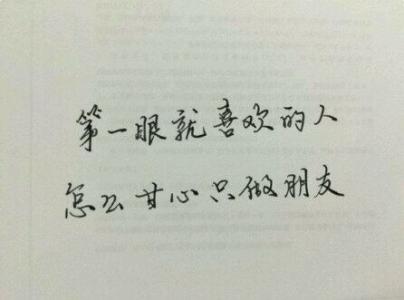 第一眼就喜欢的人
怎么甘心只做朋友